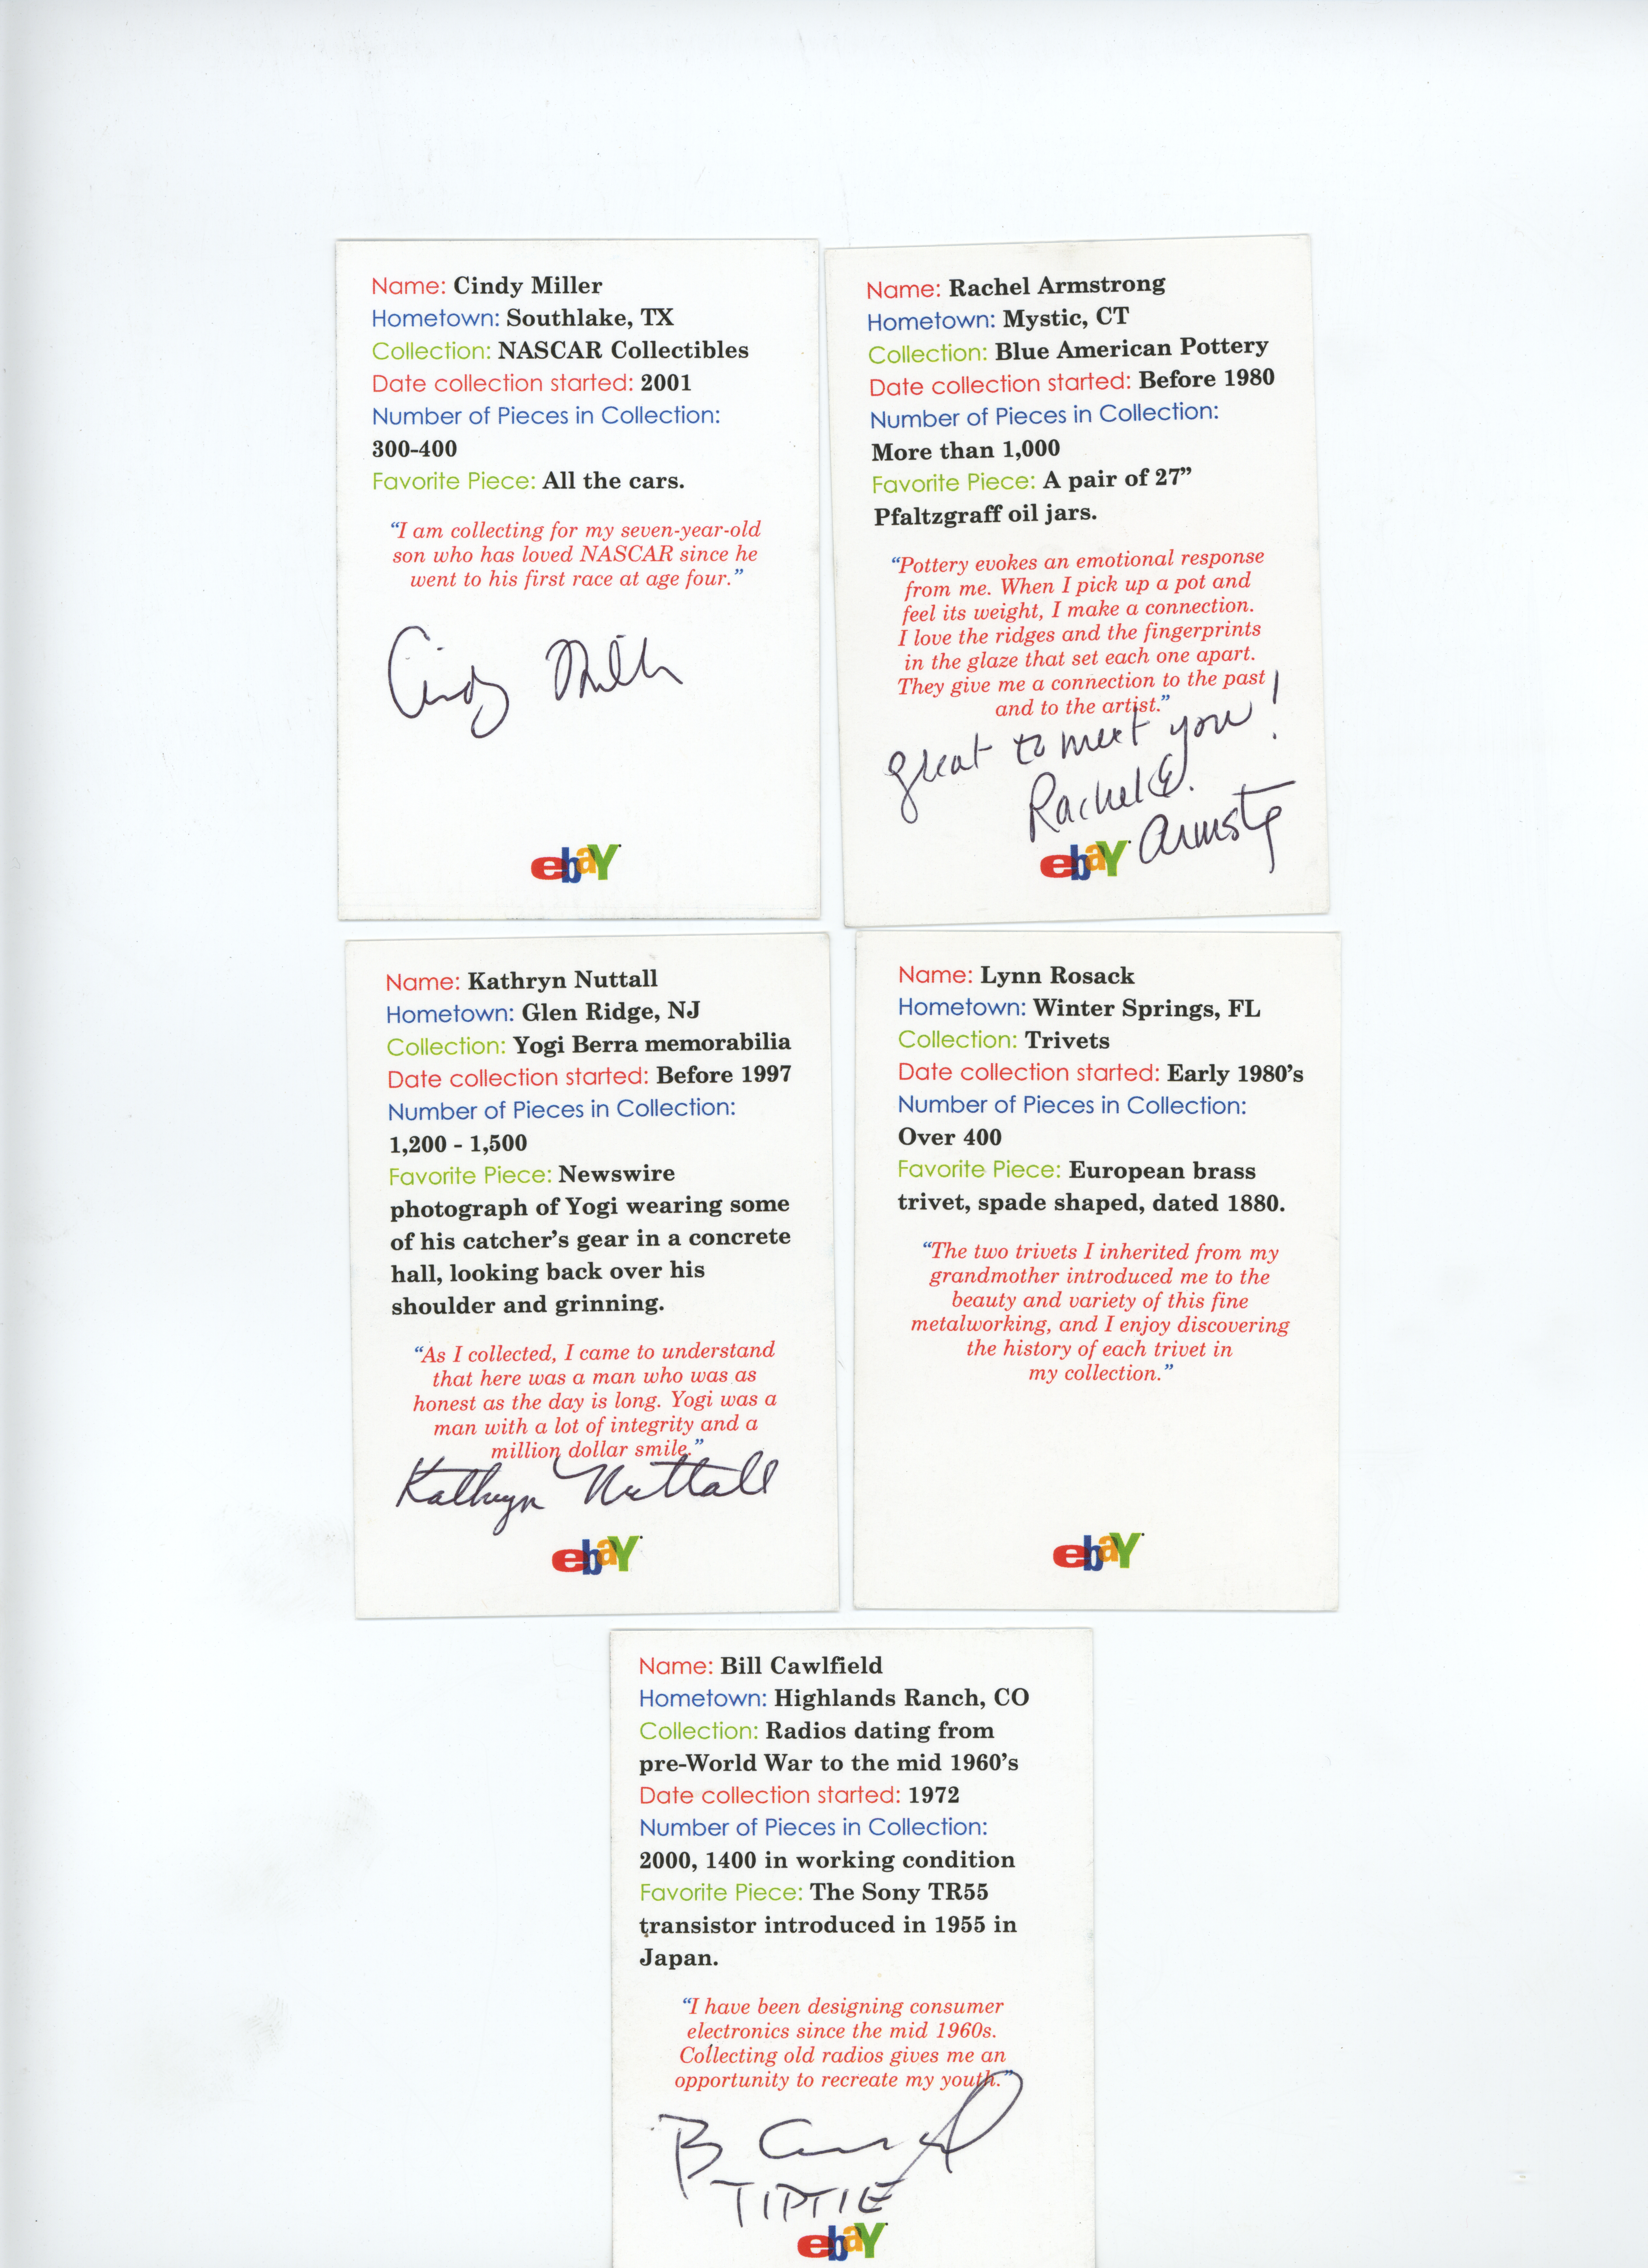 Name: Cindy Miller
Hometown: Southlake, TX
Collection: NASCAR Collectibles
Date collection started: 2001
Number of Pieces in Collection:
300-400
Favorite Piece: All the cars.
“I am collecting for my seven-year-old
son who has loved NASCAR since he
went to his first race at age four.”
Cindy Miller
ebaY
Name: Rachel Armstrong
Hometown: Mystic, CT
Collection: Blue American Pottery
Date collection started: Before 1980
Number of Pieces in Collection:
More than 1,000
Favorite Piece: A pair of 27”
Pfaltzgraff oil jars.
“Pottery evokes an emotional response
from me. When I pick up a pot and
feel its weight, I make a connection.
I love the ridges and the fingerprints
in the glaze that set each one apart.
They give me a connection to the past
and to the artist.”
great to meet you!
Rachel E.
Armstg
ebaY
Name: Kathryn Nuttall
Hometown: Glen Ridge, NJ
Collection: Yogi Berra memorabilia
Date collection started: Before 1997
Number of Pieces in Collection:
1,200 - 1,500
Favorite Piece: Newswire
photograph of Yogi wearing some
of his catcher’s gear in a concrete
hall, looking back over his
shoulder and grinning.
“As I collected, I came to understand
that here was a man who was as
honest as the day is long. Yogi was a
man with a lot of integrity and a
million dollar smile.”
Kathryn Nuttall
ebaY
Name: Lynn Rosack
Hometown: Winter Springs, FL
Collection: Trivets
Date collection started: Early 1980’s
Number of Pieces in Collection:
Over 400
Favorite Piece: European brass
trivet, spade shaped, dated 1880.
“The two trivets I inherited from my
grandmother introduced me to the
beauty and variety of this fine
metalworking, and I enjoy discovering
the history of each trivet in
my collection.”
ebaY
Name: Bill Cawlfield
Hometown: Highlands Ranch, CO
Collection: Radios dating from
pre-World War to the mid 1960’s
Date collection started: 1972
Number of Pieces in Collection:
2000, 1400 in working condition
Favorite Piece: The Sony TR55
transistor introduced in 1955 in
Japan.
“I have been designing consumer
electronics since the mid 1960s.
Collecting old radios gives me an
opportunity to recreate my youth.”
TIPTIE
ebaY